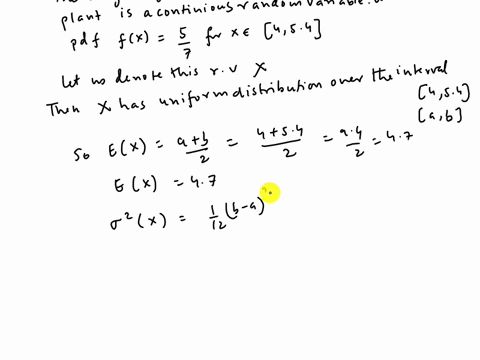 plant is a continious random variable.
pdf f(x) = 5/7 for x ∈ [4, 5.4]
Let us denote this r.v X
Then X has uniform distribution over the interval
[4, 5.4]
[a, b]
So E(X) = a+b/2 = 4+5.4/2 = 9.4/2 = 4.7
E(X) = 4.7
σ²(X) = 1/12 (b-a)²